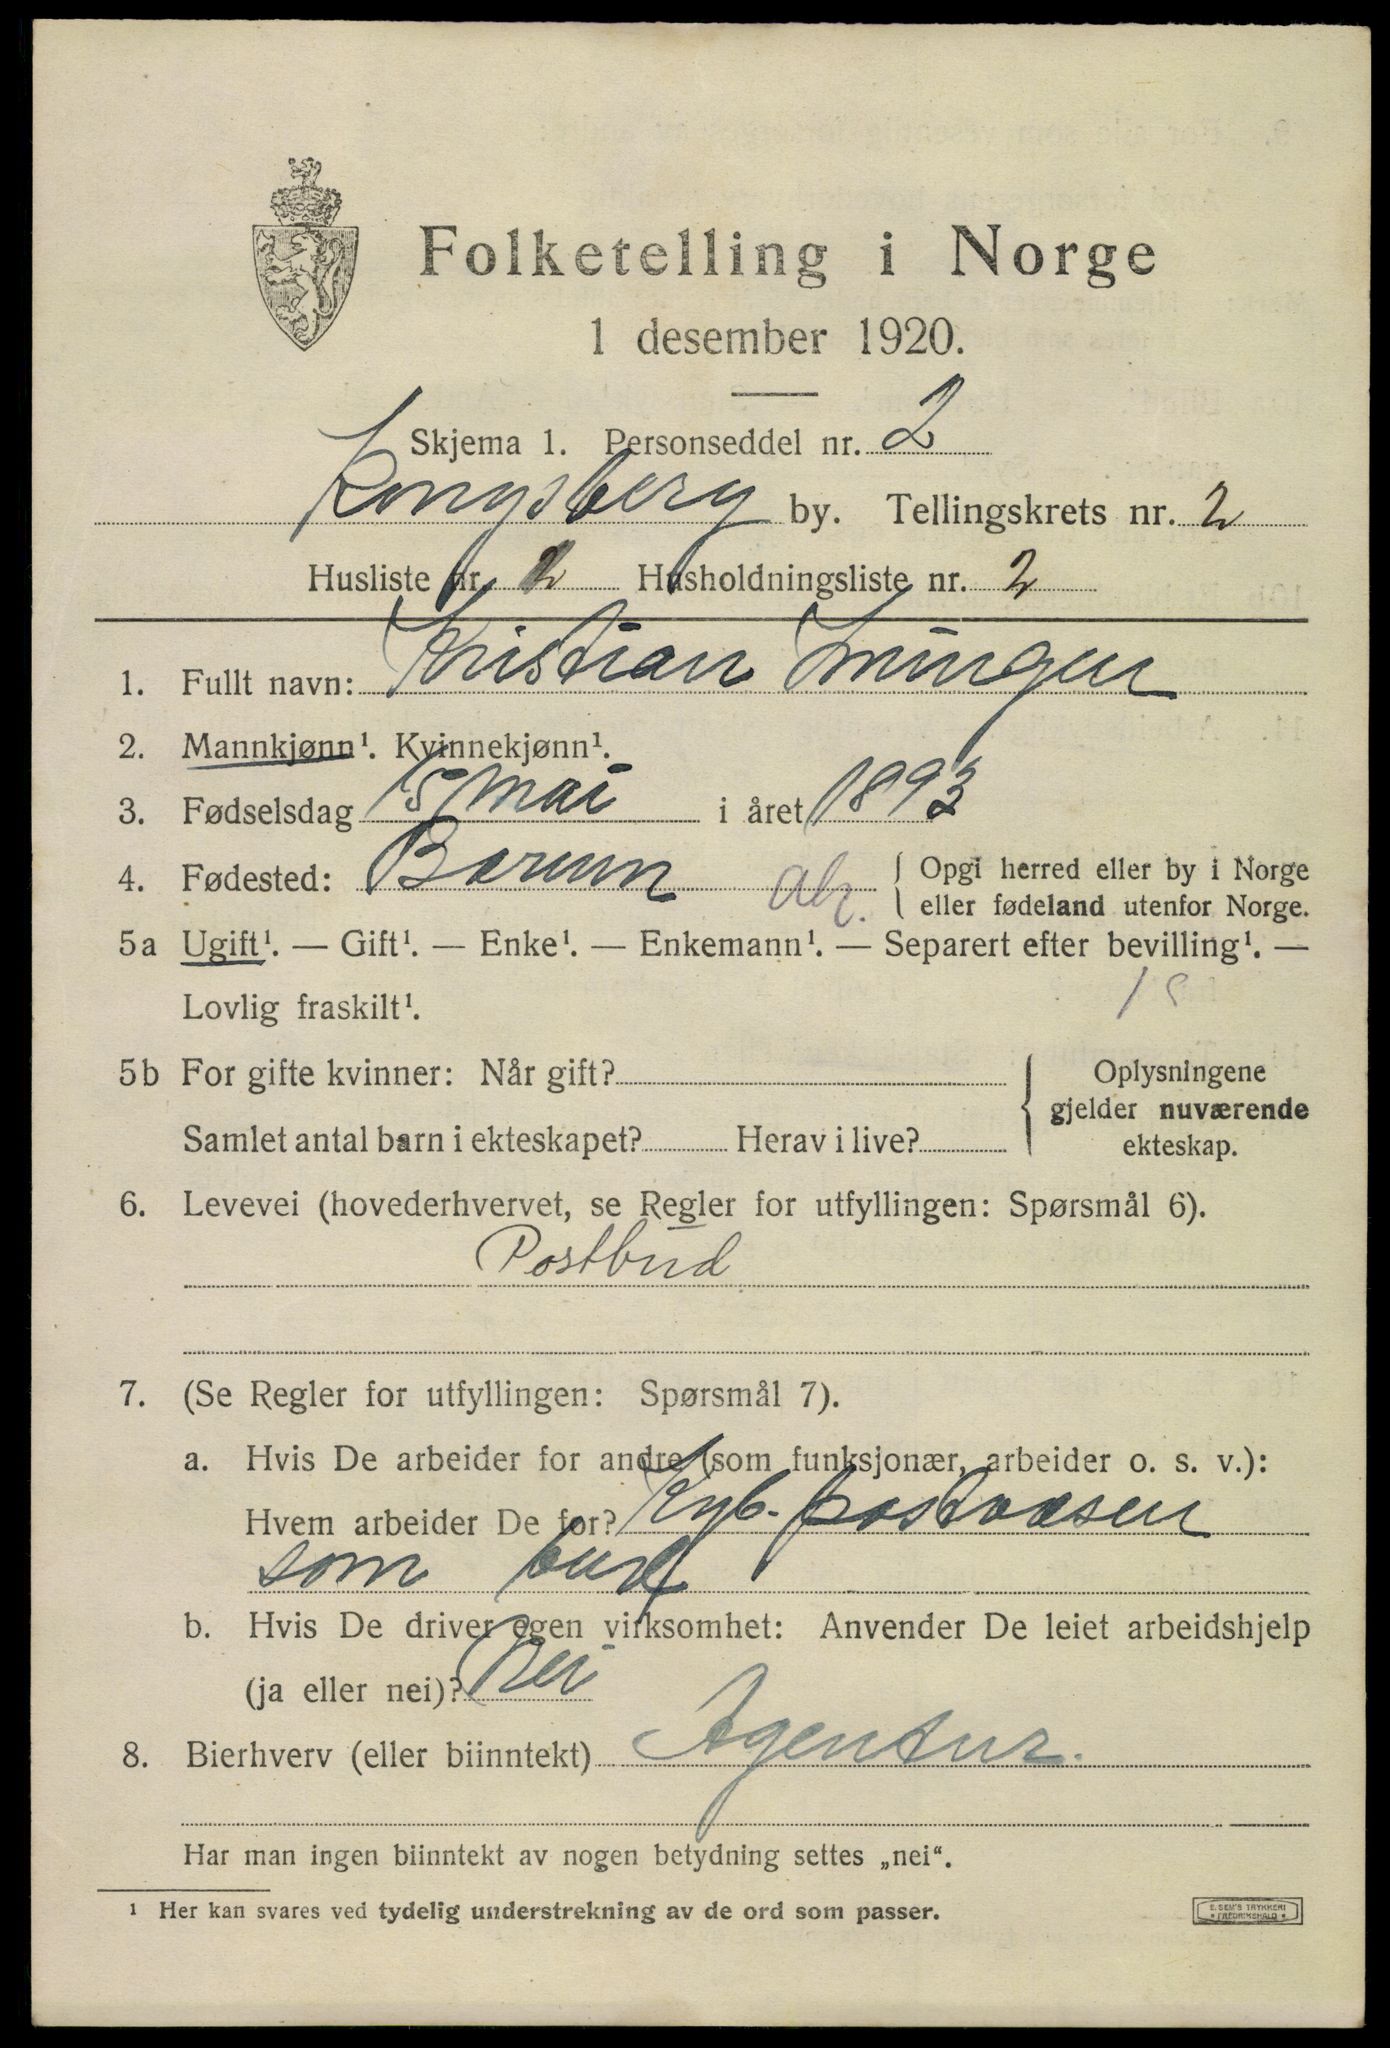 Folketelling i Norge
1 desember 1920.
Skjema 1. Personseddel nr. 2
Kongsberg by. Tellingskrets nr. 2
Husliste nr. 2 Husholdningsliste nr. 2
1. Fullt navn: Kristian
2. Mannkjønn¹. Kvinnekjønn¹.
3. Fødselsdag 15 mai i året 1893
4. Fødested: Bærum { Opgi herred eller by i Norge
eller fødeland utenfor Norge.
5a Ugift¹. — Gift¹. — Enke¹. — Enkemann¹. — Separert efter bevilling¹. —
Lovlig fraskilt¹.
5b For gifte kvinner: Når gift?
Samlet antal barn i ekteskapet? Herav i live?
{ Oplysningene
gjelder nuværende
ekteskap.
6. Levevei (hovederhvervet, se Regler for utfyllingen: Spørsmål 6).
Postbud
7. (Se Regler for utfyllingen: Spørsmål 7).
a. Hvis De arbeider for andre (som funksjonær, arbeider o. s. v.):
Hvem arbeider De for? Kgb. postvæsen
som bud
b. Hvis De driver egen virksomhet: Anvender De leiet arbeidshjelp
(ja eller nei)? Nei
8. Bierhverv (eller biinntekt) Agentur.
Har man ingen biinntekt av nogen betydning settes „nei“.
¹ Her kan svares ved tydelig understrekning av de ord som passer.
E. SEM'S TRYKKERI
FREDRIKSHALD